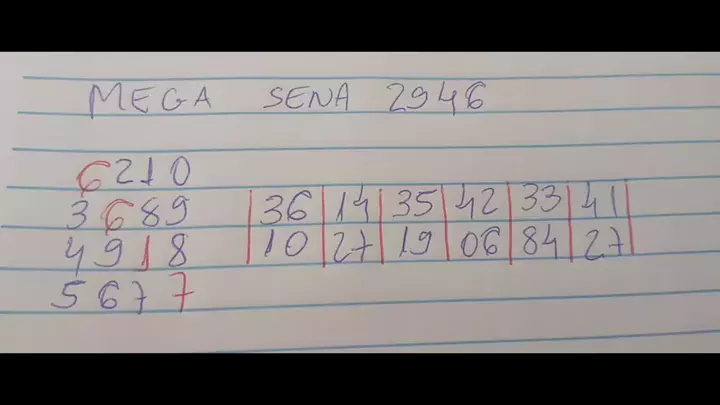 MEGA SENA 2946
6210
3689
4918
5677
36 14 35 42 33 41
10 27 19 06 84 27